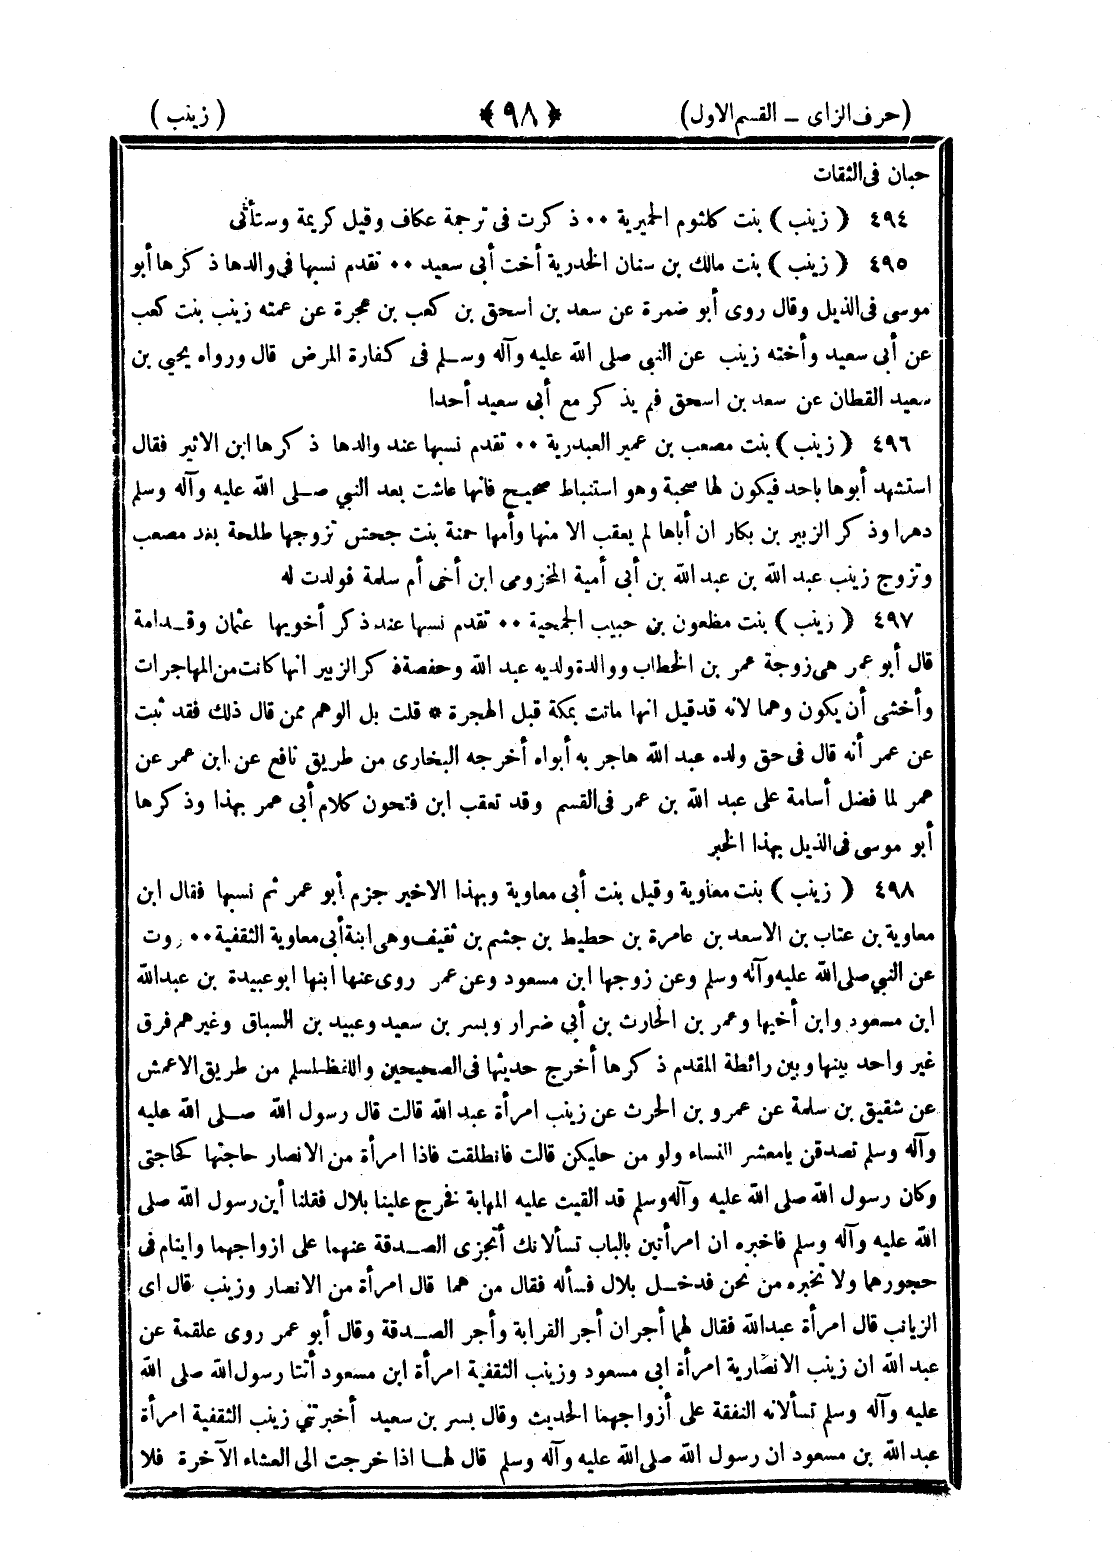 (حرف الزاى – القسم الاول) ﴿ ٩٨ ﴾ (زينب)
حبان فى الثقات
٤٩٤ (زينب) بنت كلثوم الحميرية ٠٠ ذكرت فى ترجمة عكاف وقيل كريمة وستأتى
٤٩٥ (زينب) بنت مالك بن سنان الخدرية أخت أبى سعيد ٠٠ تقدم نسبها فى والدها ذكرها أبو
موسى فى الذيل وقال روى أبو ضمرة عن سعد بن اسحق بن كعب بن عجرة عن عمته زينب بنت كعب
عن أبى سعيد وأخته زينب عن النبي صلى الله عليه وآله وسلم فى كفارة المرض قال ورواه يحيي بن
سعيد القطان عن سعد بن اسحق فلم يذكر مع أبى سعيد أحدا
٤٩٦ (زينب) بنت مصعب بن عمير العبدرية ٠٠ تقدم نسبها عند والدها ذكرها ابن الاثير فقال
استشهد أبوها باحد فيكون لها صحبة وهو استنباط صحيح فانها عاشت بعد النبي صلى الله عليه وآله وسلم
دهرا وذكر الزبير بن بكار ان أباها لم يعقب الا منها وأمها حمنة بنت جحش تزوجها طلحة بعد مصعب
وتزوج زينب عبد الله بن عبد الله بن أبى أمية المخزومى ابن أخى أم سلمة فولدت له
٤٩٧ (زينب) بنت مظعون بن حبيب الجمحية ٠٠ تقدم نسبها عند ذكر أخويها عثمان وقدامة
قال أبو عمر هى زوجة عمر بن الخطاب ووالدة ولديه عبد الله وحفصة ذكر الزبير انها كانت من المهاجرات
وأخشى أن يكون وهما لانه قد قيل انها ماتت بمكة قبل الهجرة * قلت بل الوهم ممن قال ذلك فقد ثبت
عن عمر أنه قال فى حق ولده عبد الله هاجر به أبواه أخرجه البخارى من طريق نافع عن ابن عمر عن
عمر لما فضل أسامة على عبد الله بن عمر فى القسم وقد تعقب ابن فتحون كلام أبى عمر بهذا وذكرها
أبو موسى فى الذيل بهذا الخبر
٤٩٨ (زينب) بنت معاوية وقيل بنت أبى معاوية وبهذا الاخير جزم أبو عمر ثم نسبها فقال ابن
معاوية بن عتاب بن الاسعد بن عامرة بن حطيط بن جشم بن ثقيف وهى ابنة أبى معاوية الثقفية ٠٠ روت
عن النبي صلى الله عليه وآله وسلم وعن زوجها ابن مسعود وعن عمر روى عنها ابنها ابو عبيدة بن عبد الله
ابن مسعود وابن أخيها وعمر بن الحارث بن أبي ضرار وبسر بن سعيد وعبيد بن السباق وغيرهم فرق
غير واحد بينها وبين رائطة المقدم ذكرها أخرج حديثها فى الصحيحين واللفظ لمسلم من طريق الاعمش
عن شقيق بن سلمة عن عمرو بن الحرث عن زينب امرأة عبد الله قالت قال رسول الله صلى الله عليه
وآله وسلم تصدقن يامعشر النساء ولو من حليكن قالت فانطلقت فاذا امرأة من الانصار حاجتها كحاجتى
وكان رسول الله صلى الله عليه وآله وسلم قد القيت عليه المهابة فخرج علينا بلال فقلنا أين رسول الله صلى
الله عليه وآله وسلم فاخبره ان امرأتين بالباب تسألانك أتجزى الصدقة عنهما على ازواجهما وايتام فى
حجورهما ولا تخبره من نحن فدخل بلال فسأله فقال من هما قال امرأة من الانصار وزينب قال اى
الزيانب قال امرأة عبدالله فقال لهما أجران أجر القرابة وأجر الصدقة وقال أبو عمر روى علقمة عن
عبد الله ان زينب الانصارية امرأة ابى مسعود وزينب الثقفية امرأة ابن مسعود أتتا رسول الله صلى الله
عليه وآله وسلم تسألانه النفقة على أزواجهما الحديث وقال بسر بن سعيد أخبرتني زينب الثقفية امرأة
عبد الله بن مسعود ان رسول الله صلى الله عليه وآله وسلم قال لها اذا خرجت الى العشاء الآخرة فلا